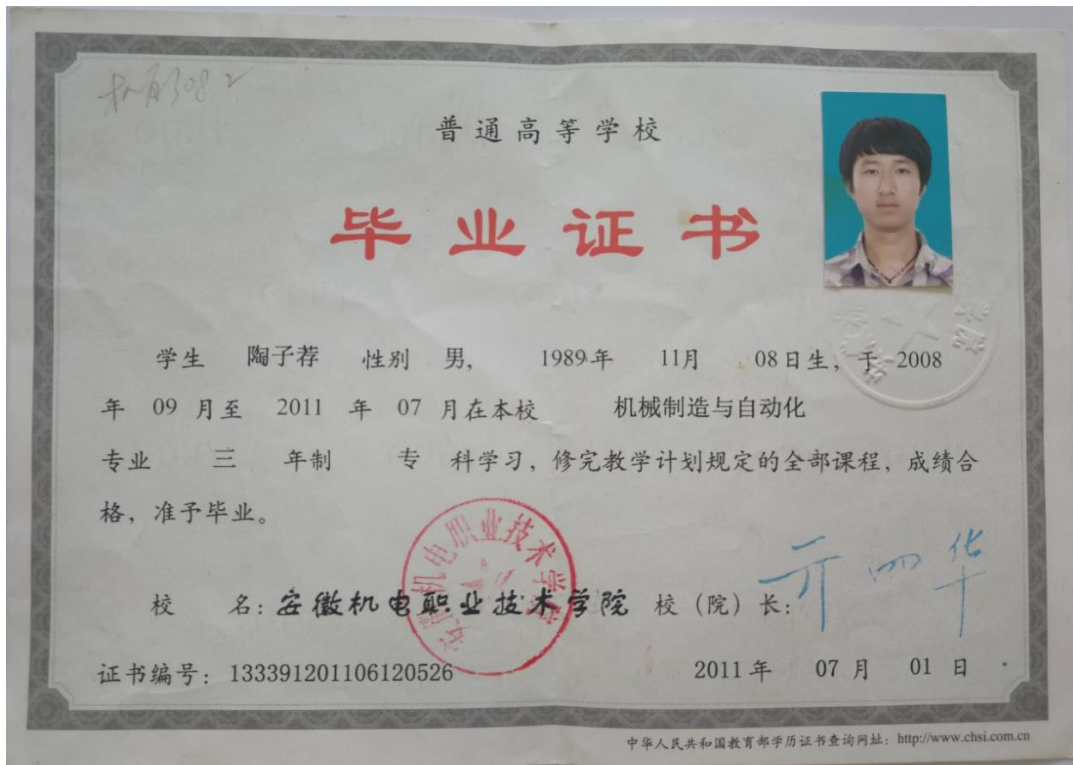 普通高等学校
毕业证书
学生 陶子荐 性别 男, 1989年 11月 08日生, 于 2008
年 09 月至 2011 年 07 月在本校 机械制造与自动化
专业 三 年制 专 科学习, 修完教学计划规定的全部课程, 成绩合
格, 准予毕业。
安徽机电职业技术学院
校 名: 安徽机电职业技术学院 校(院)长:
证书编号: 133391201106120526 2011 年 07 月 01 日
中华人民共和国教育部学历证书查询网址: http://www.chsi.com.cn